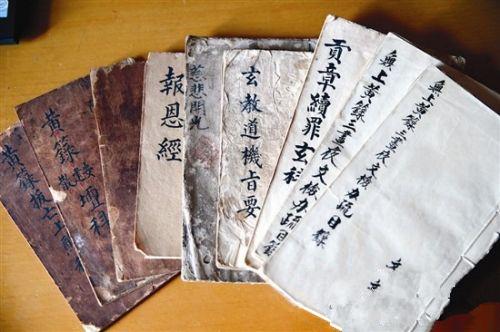 黃籙
黃籙
散壇科
報恩經
慈悲開光
玄教道機旨要
貢章續罪玄科
無上黃籙三晝夜文檢疏目錄
無上黃籙三晝夜文檢疏目錄